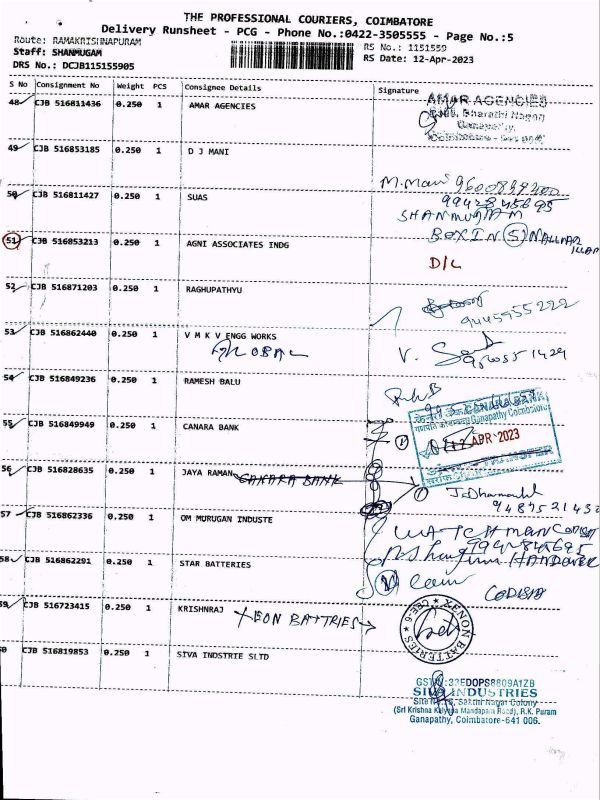 THE PROFESSIONAL COURIERS, COIMBATORE
Delivery Runsheet - PCG - Phone No.:0422-3505555 - Page No.:5
Route: RAMAKRISHNAPURAM
RS No.: 1151559
Staff: SHANMUGAM
RS Date: 12-Apr-2023
DRS No.: DCJB115155905
S No Consignment No Weight PCS Consignee Details Signature
48 CJB 516811436 0.250 1 AMAR AGENCIES
AMAR AGENCIES
Bharathi Nagar
Ganapathy,
49 CJB 516853185 0.250 1 D J MANI
M. Mani
50 CJB 516811427 0.250 1 SUAS
9942845695
SHANMUGAM
51 CJB 516853213 0.250 1 AGNI ASSOCIATES INDG
BOX IN (5)
D/L
52 CJB 516871203 0.250 1 RAGHUPATHYU
9445955222
53 CJB 516862440 0.250 1 V M K V ENGG WORKS
GLOBAL
V.
54 CJB 516849236 0.250 1 RAMESH BALU
55 CJB 516849949 0.250 1 CANARA BANK
CANARA BANK
Ganapathy Coimbatore
12 APR 2023
56 CJB 516828635 0.250 1 JAYA RAMAN CANARA BANK
57 CJB 516862336 0.250 1 OM MURUGAN INDUSTE
WATCHMAN
9942845695
58 CJB 516862291 0.250 1 STAR BATTERIES
HANDOVER
CODISIA
59 CJB 516723415 0.250 1 KRISHNRAJ XEON BATTRIES
XENON BATTERIES
CBE-6
60 CJB 516819853 0.250 1 SIVA INDSTRIE SLTD
GSTIN:33EDOPS8809A1ZB
SIVA INDUSTRIES
Sakthi Nagar Colony
(Sri Krishna Kalyana Mandapam Road), R.K. Puram
Ganapathy, Coimbatore-641 006.